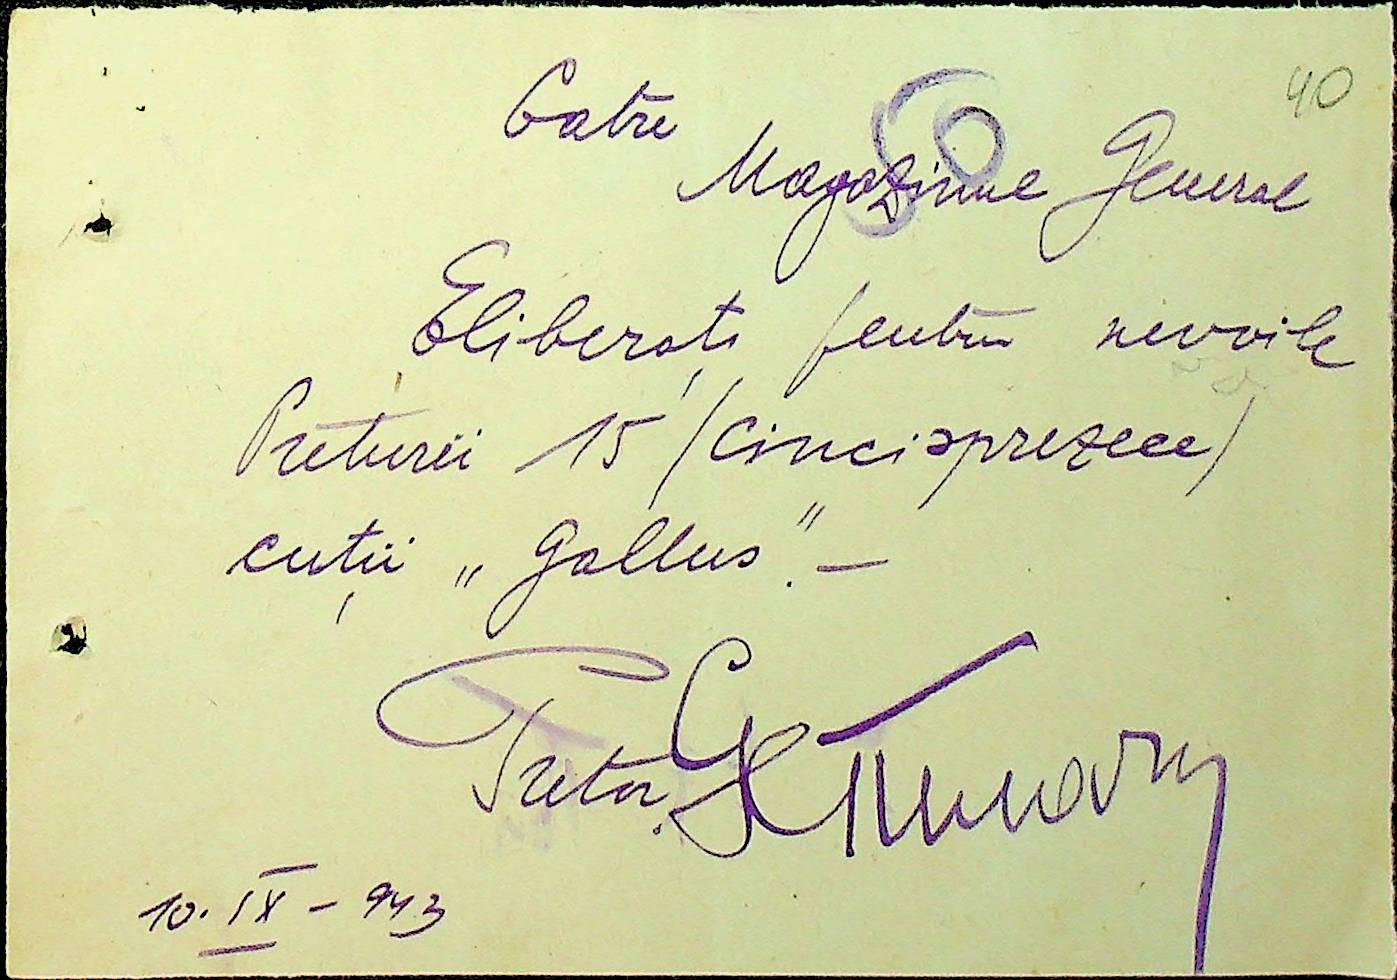 40
Catre
Magazinul General
Eliberați pentru nevoile
Preturii 15 (cincisprezece)
cuții „Gallus”. —
Pretor,
10. IX - 943